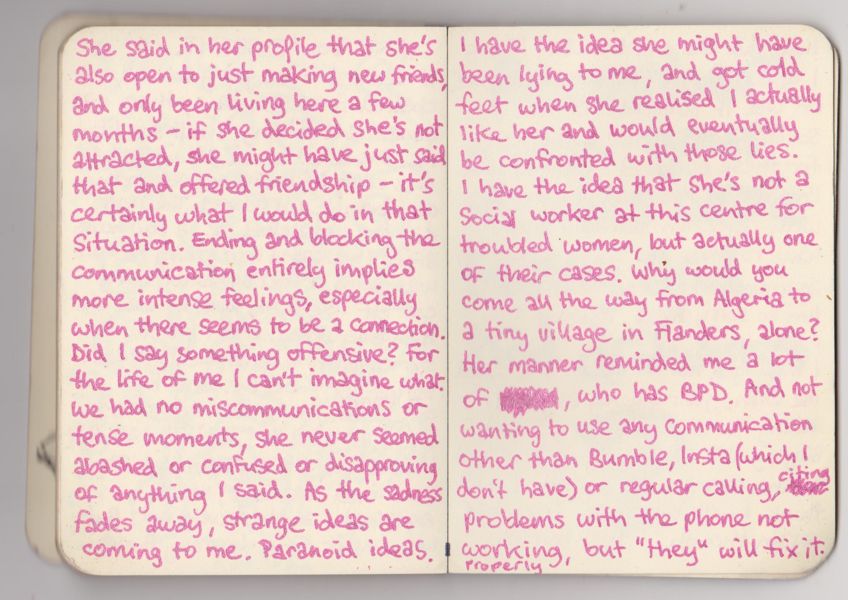 She said in her profile that she's
also open to just making new friends,
and only been living here a few
months – if she decided she's not
attracted, she might have just said
that and offered friendship – it's
certainly what I would do in that
situation. Ending and blocking the
communication entirely implies
more intense feelings, especially
when there seems to be a connection.
Did I say something offensive? For
the life of me I can't imagine what.
We had no miscommunications or
tense moments, she never seemed
abashed or confused or disapproving
of anything I said. As the sadness
fades away, strange ideas are
coming to me. Paranoid ideas.
I have the idea she might have
been lying to me, and got cold
feet when she realised I actually
like her and would eventually
be confronted with those lies.
I have the idea that she's not a
social worker at this centre for
troubled women, but actually one
of their cases. Why would you
come all the way from Algeria to
a tiny village in Flanders, alone?
Her manner reminded me a lot
of , who has BPD. And not
wanting to use any communication
other than Bumble, Insta (which I
don't have) or regular calling, citing
problems with the phone not
working, but "they" will fix it.
properly